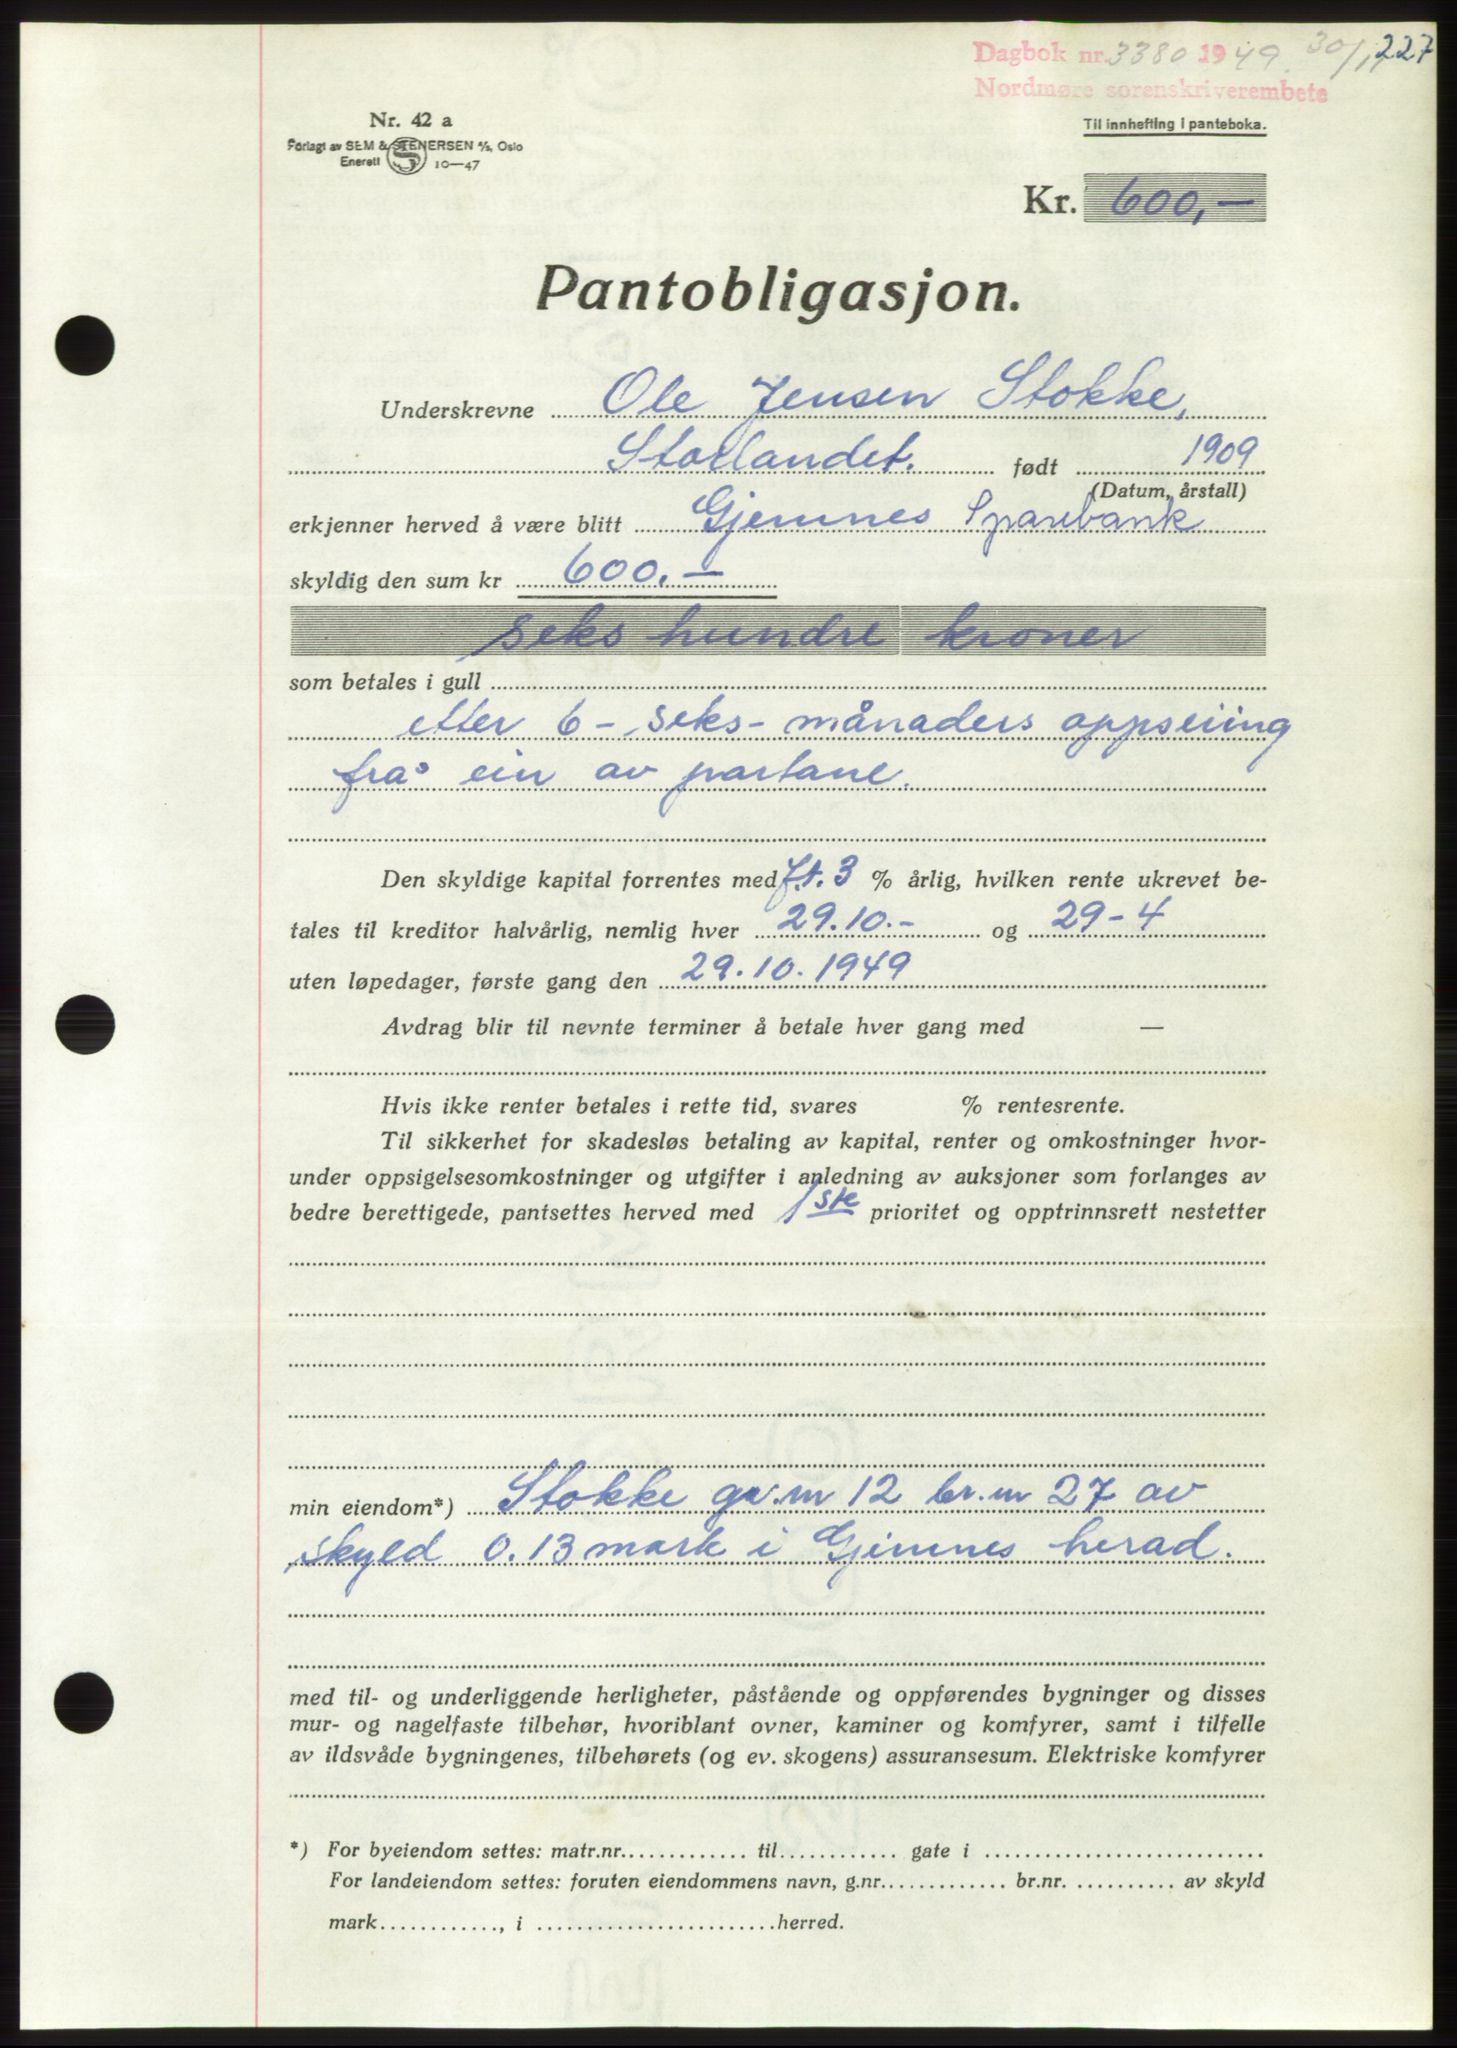 Dagbok nr. 3380 1949. 30/11 227
Nordmøre sorenskriverembete
Nr. 42 a
Forlagt av SEM & STENERSEN A/S, Oslo
Enerett 10—47
Til innhefting i panteboka.
Kr. 600,—
Pantobligasjon.
Underskrevne Ole Jensen Stokke,
Storlandet. født 1909
(Datum, årstall)
erkjenner herved å være blitt Gjemnes Sparebank
skyldig den sum kr 600.—
seks hundre kroner
som betales i gull
etter 6 - seks - månaders oppseiing
frå ein av partane.
Den skyldige kapital forrentes med f.t. 3 % årlig, hvilken rente ukrevet be-
tales til kreditor halvårlig, nemlig hver 29.10.- og 29-4
uten løpedager, første gang den 29.10.1949
Avdrag blir til nevnte terminer å betale hver gang med —
Hvis ikke renter betales i rette tid, svares % rentesrente.
Til sikkerhet for skadesløs betaling av kapital, renter og omkostninger hvor-
under oppsigelsesomkostninger og utgifter i anledning av auksjoner som forlanges av
bedre berettigede, pantsettes herved med 1ste prioritet og opptrinnsrett nestetter
min eiendom*) Stokke gr.nr 12 br.nr 27 av
skyld 0.13 mark i Gjemnes herad.
med til- og underliggende herligheter, påstående og oppførendes bygninger og disses
mur- og nagelfaste tilbehør, hvoriblant ovner, kaminer og komfyrer, samt i tilfelle
av ildsvåde bygningenes, tilbehørets (og ev. skogens) assuransesum. Elektriske komfyrer
*) For byeiendom settes: matr.nr. til gate i
For landeiendom settes: foruten eiendommens navn, g.nr. br.nr. av skyld
mark, i herred.